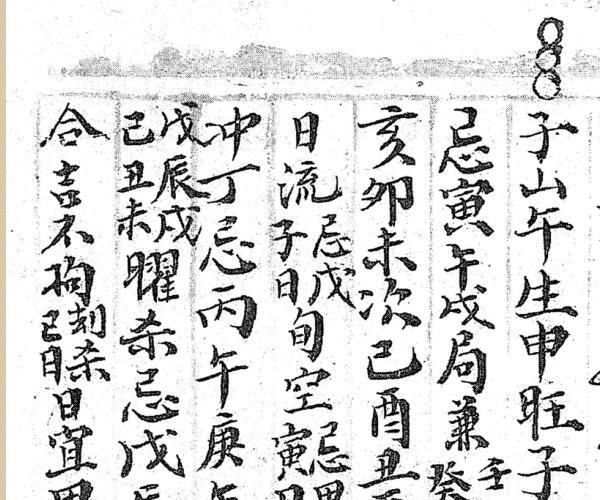 子山午生申旺子
忌寅午戌局兼壬癸
亥卯未次己酉丑
日流忌戌子日旬空忌寅
冲丁忌丙午庚午
戊辰戌己丑未曜杀忌戊辰
合吉不拘刻杀己日日宜